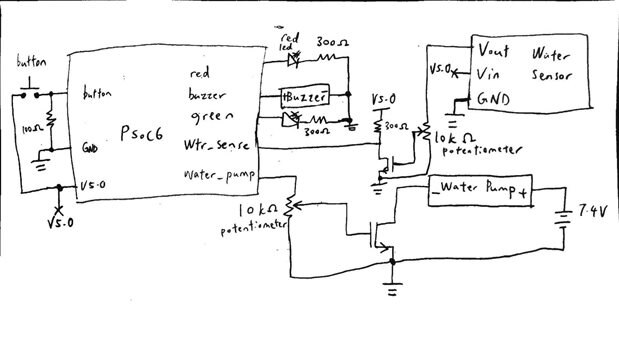 button
button
100Ω
GND
V5.0
V5.0
PSoC6
red
buzzer
green
Wtr_sense
Water_pump
red
led
300Ω
+Buzzer-
300Ω
V5.0
300Ω
10kΩ
potentiometer
Vout
Vin
GND
Water
Sensor
V5.0
10kΩ
potentiometer
-Water Pump+
7.4V